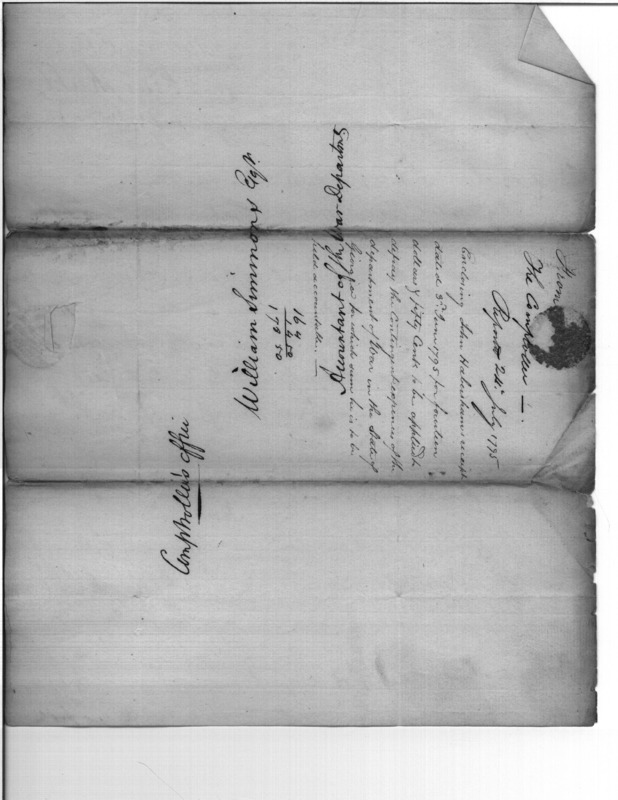 From
The Comptroller —.
Reported 24th July 1795
Enclosing John Habersham's receipt
dated 3d June 1795 for fourteen
dollars & fifty Cents to be applied to
defray the Contingent expences of the
department of War in the State of
Georgia for which sum he is to be
held accountable. —
Accountant of the War Department
William Simmons Esqr.
164
14 50
178 50.
Comptroller's office